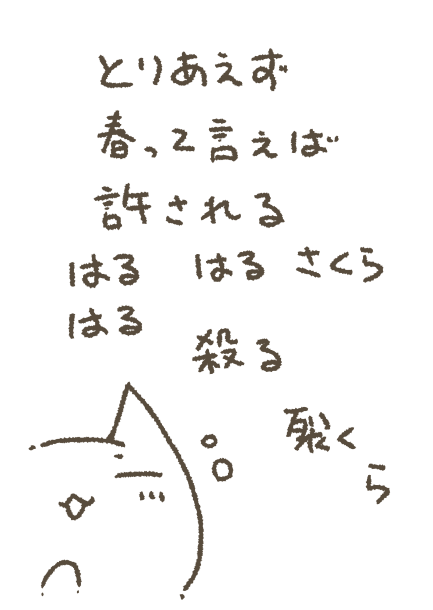 とりあえず
春って言えば
許される
はる はる さくら
はる
殺る
裂く
ら